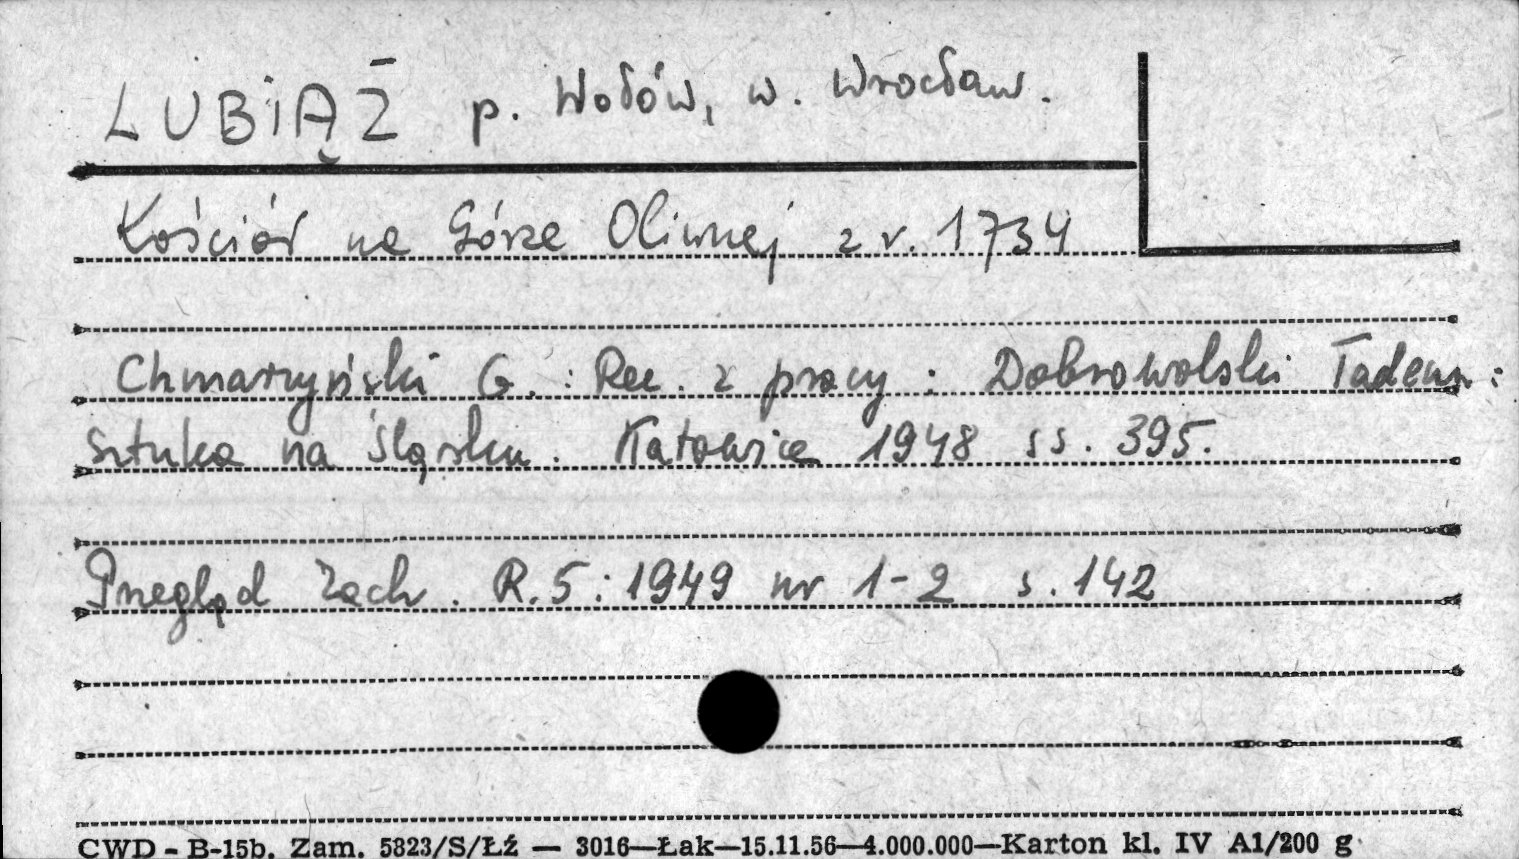 LUBIĄŻ p. Wołów, w. Wrocław.
Kościół na Górze Oliwnej z r. 1734
Chmarzyński G. : Rec. z pracy : Dobrowolski Tadeusz :
Sztuka na Śląsku. Katowice 1948 ss. 395.
Przegląd Zach. R. 5 : 1949 nr 1-2 s. 142
CWD - B-15b. Zam. 5823/S/Łź — 3016—Łak—15.11.56—4.000.000—Karton kl. IV A1/200 g